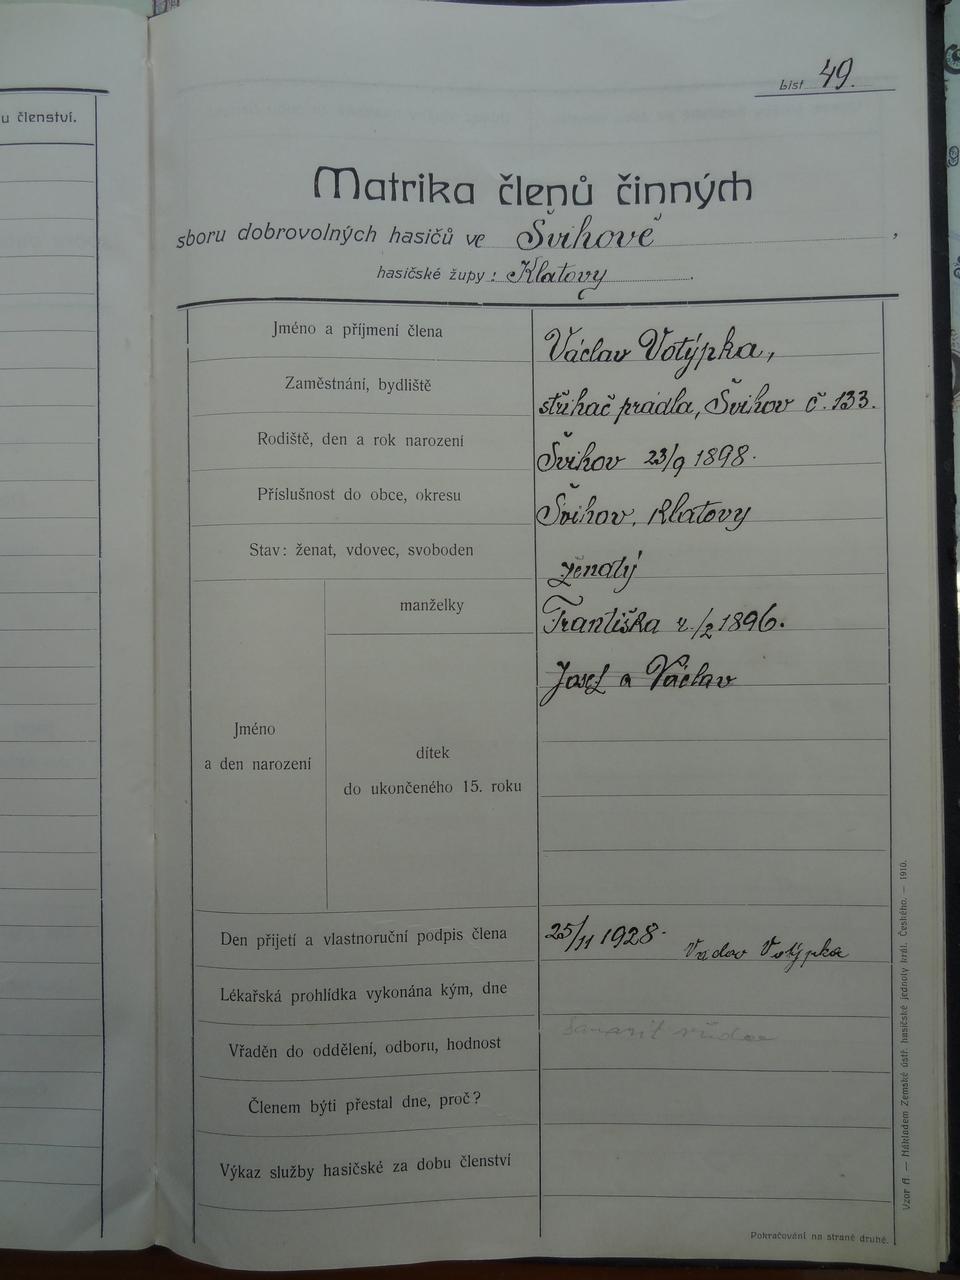 u členství.
List 49.
Matrika členů činných
sboru dobrovolných hasičů ve Švihově,
hasičské župy: Klatovy.
Jméno a příjmení člena
Václav Votýpka,
Zaměstnání, bydliště
střihač prádla, Švihov č. 133.
Rodiště, den a rok narození
Švihov 23/9 1898.
Příslušnost do obce, okresu
Švihov, Klatovy
Stav: ženat, vdovec, svoboden
ženatý
manželky
Františka 1896.
Josef a Václav
Jméno
a den narození
dítek
do ukončeného 15. roku
Den přijetí a vlastnoruční podpis člena
25/11 1928. Václav Votýpka
Lékařská prohlídka vykonána kým, dne
Vřaděn do oddělení, odboru, hodnost
Členem býti přestal dne, proč?
Výkaz služby hasičské za dobu členství
Pokračování na straně druhé.
Vzor A — Nákladem Zemské ústř. hasičské jednoty král. Českého. — 1910.